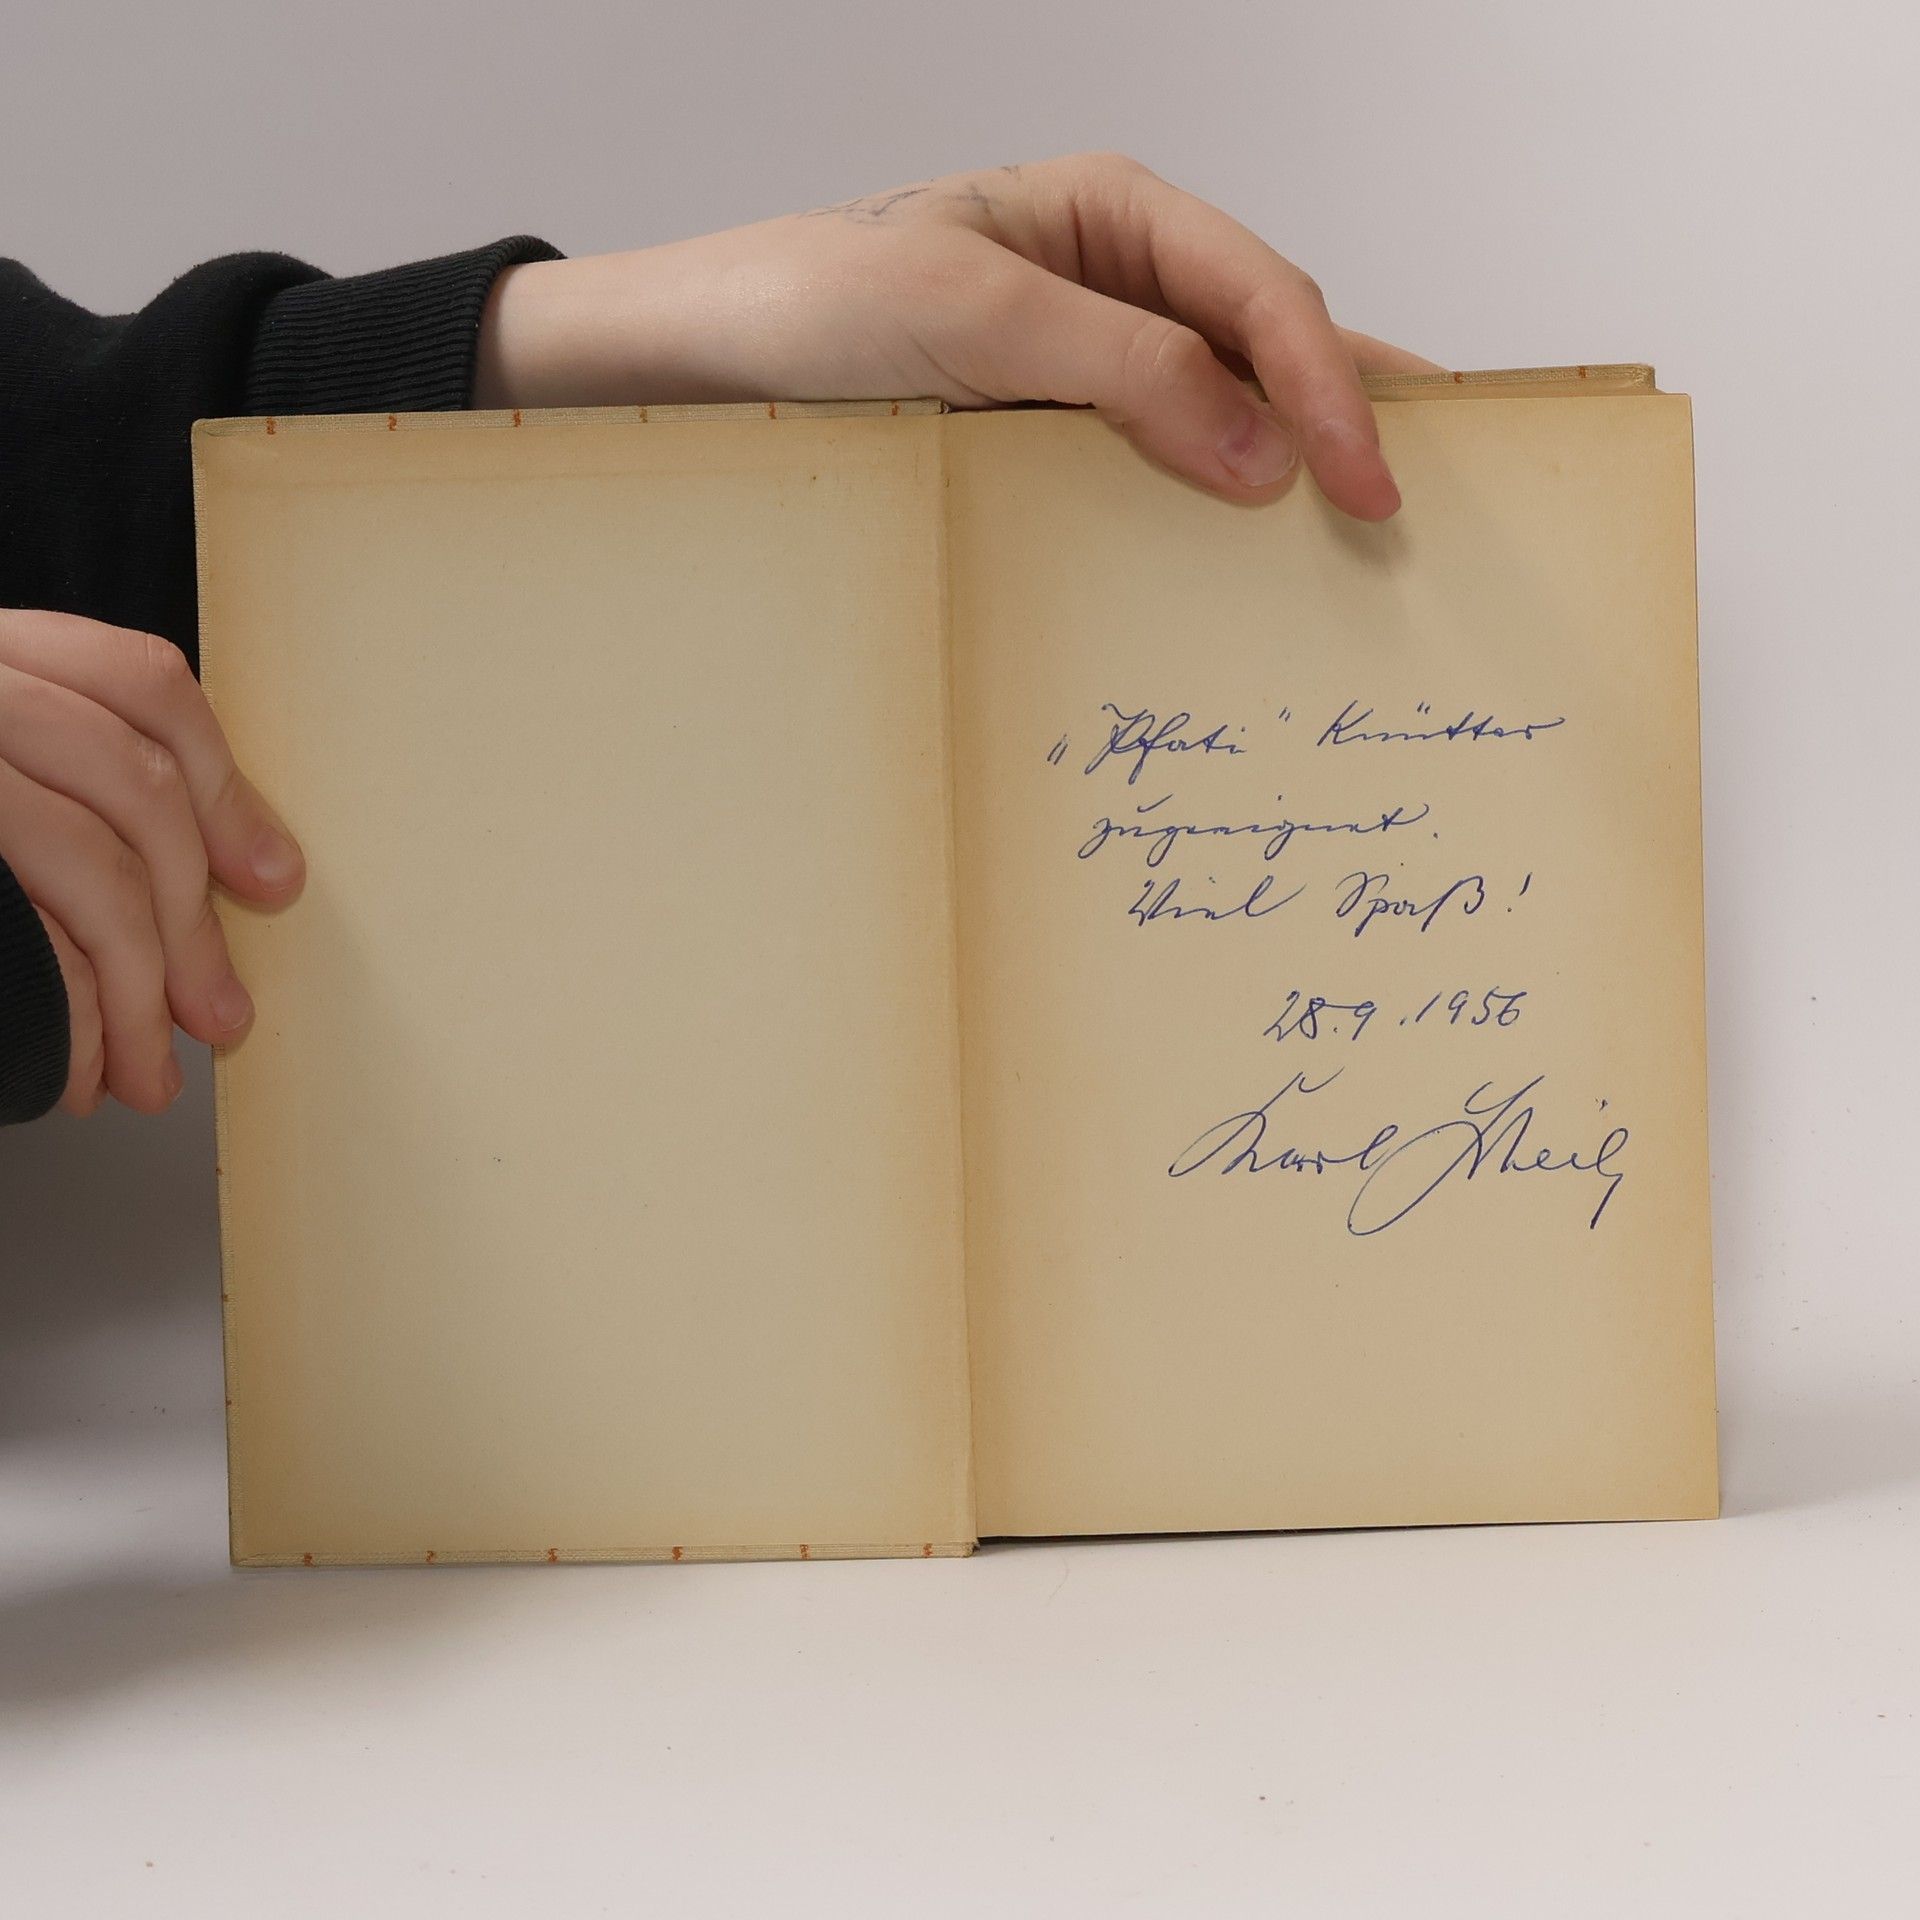 „Pfati" Knütter
zugeeignet.
Viel Spaß!
28.9.1956
Karl